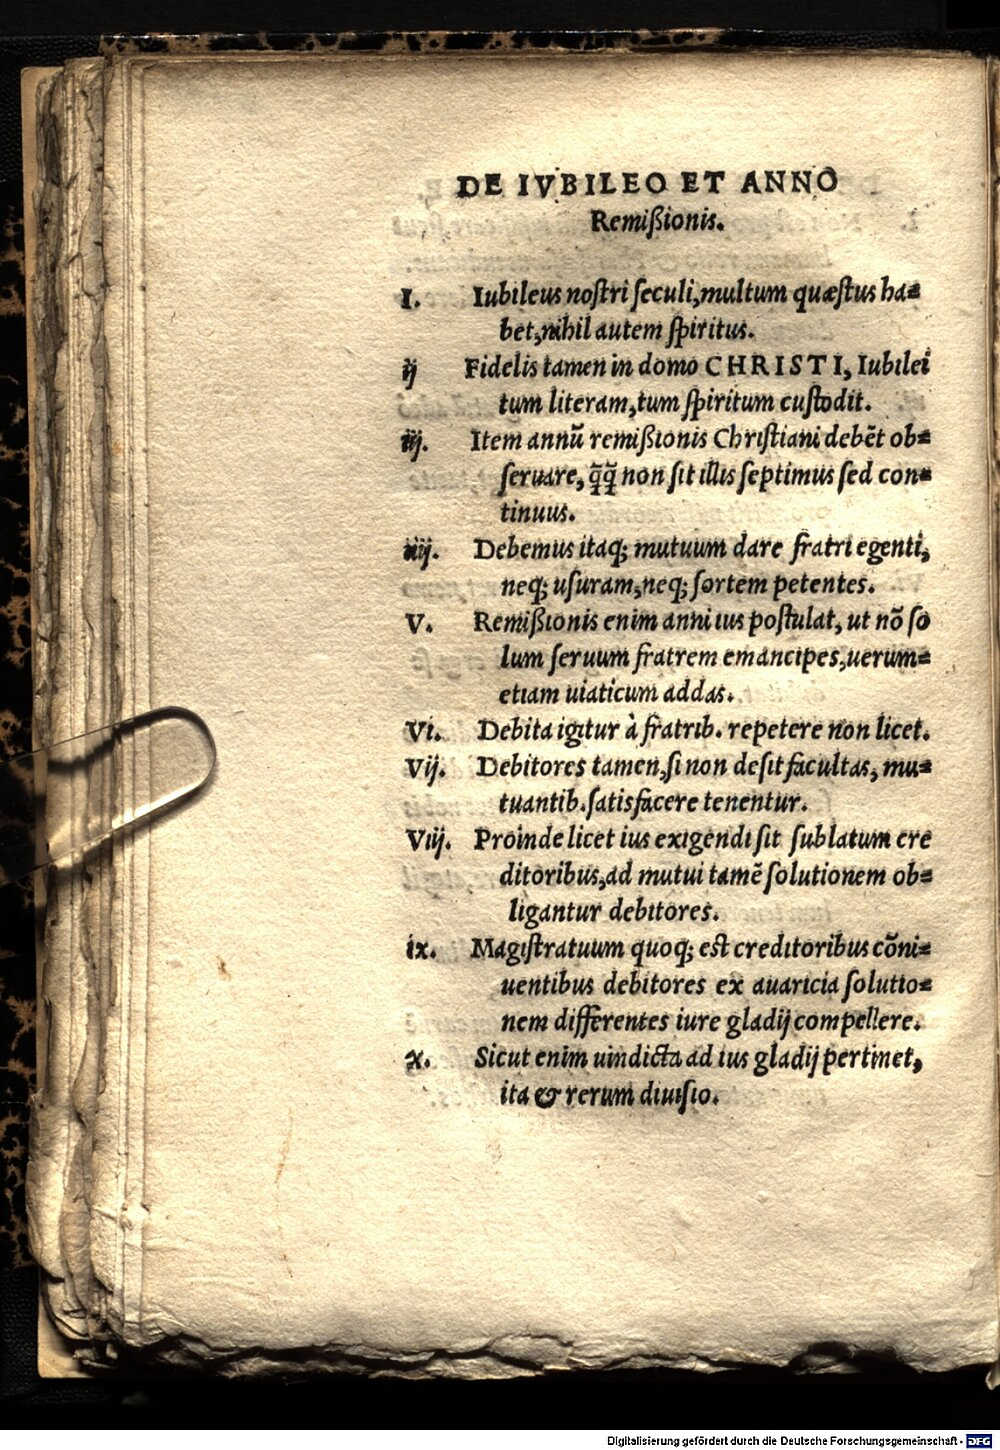 DE IVBILEO ET ANNO
Remißionis.
I. Iubileus noſtri ſeculi, multum quæſtus ha=
bet, nihil autem ſpiritus.
ij Fidelis tamen in domo CHRISTI, Iubilei
tum literam, tum ſpiritum cuſtodit.
iij. Item annū remißionis Chriſtiani debēt ob=
ſeruare, q̃q̃ non ſit illis ſeptimus ſed con=
tinuus.
iiij. Debemus itaq; mutuum dare fratri egenti,
neq; uſuram, neq; ſortem petentes.
V. Remißionis enim anni ius poſtulat, ut nō ſo
lum ſeruum fratrem emancipes, uerum=
etiam uiaticum addas.
Vi. Debita igitur à fratrib. repetere non licet.
Vij. Debitores tamen, ſi non deſit facultas, mu=
tuantib. ſatisfacere tenentur.
Viij. Proinde licet ius exigendi ſit ſublatum cre
ditoribus, ad mutui tamē ſolutionem ob=
ligantur debitores.
ix. Magiſtratuum quoq; eſt creditoribus cōni=
uentibus debitores ex auaricia ſolutio=
nem differentes iure gladij compellere.
x. Sicut enim uindicta ad ius gladij pertinet,
ita & rerum diuiſio.
Digitalisierung gefördert durch die Deutsche Forschungsgemeinschaft - DFG